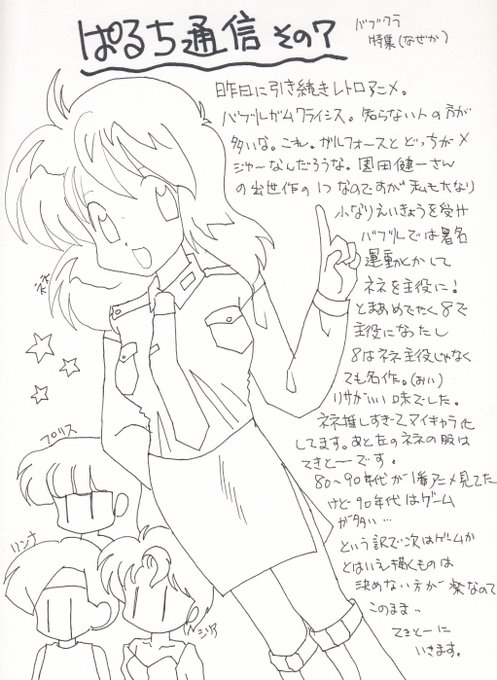 ぱるち通信 その7
バブクラ
特集(なぜか)
昨日に引き続きレトロアニメ。
バブルガムクライシス。知らない人の方が
多いな。これ。ガルフォースとどっちがメ
ジャーなんだろうな。園田健一さん
の出世作の1つなのですが私も大なり
小なりえいきょうを受け
バブルでは署名
運動とかして
ネネを主役に!
とまあめでたく8で
主役になったし
8はネネ主役じゃなく
ても名作。(おい)
リサがいい味でした。
ネネ推しすぎてマイキャラ化
してます。あと左のネネの服は
てきとーです。
80〜90年代が1番アニメ見てた
けど90年代はゲーム
が多い…
という訳で次はゲームか
とはいえ描くものは
決めない方が楽なので
このまま〜
てきとーに
いきます。
ネネ
プリス
リンナ